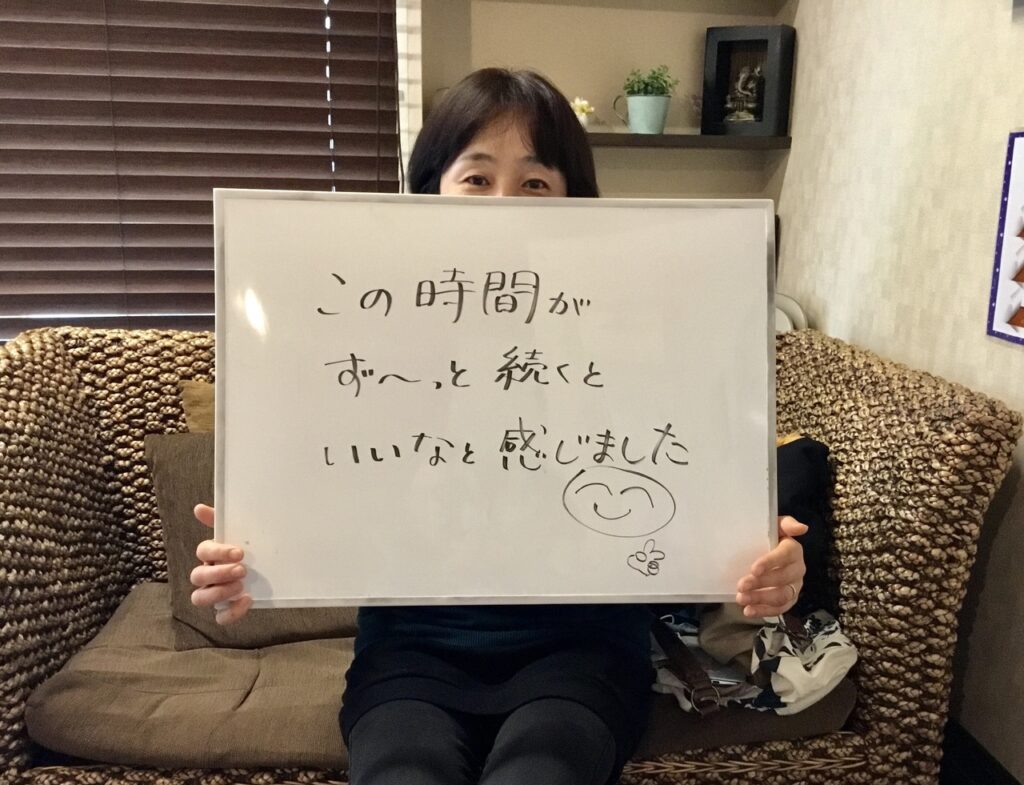 この時間が
ず〜っと続くと
いいなと感じました